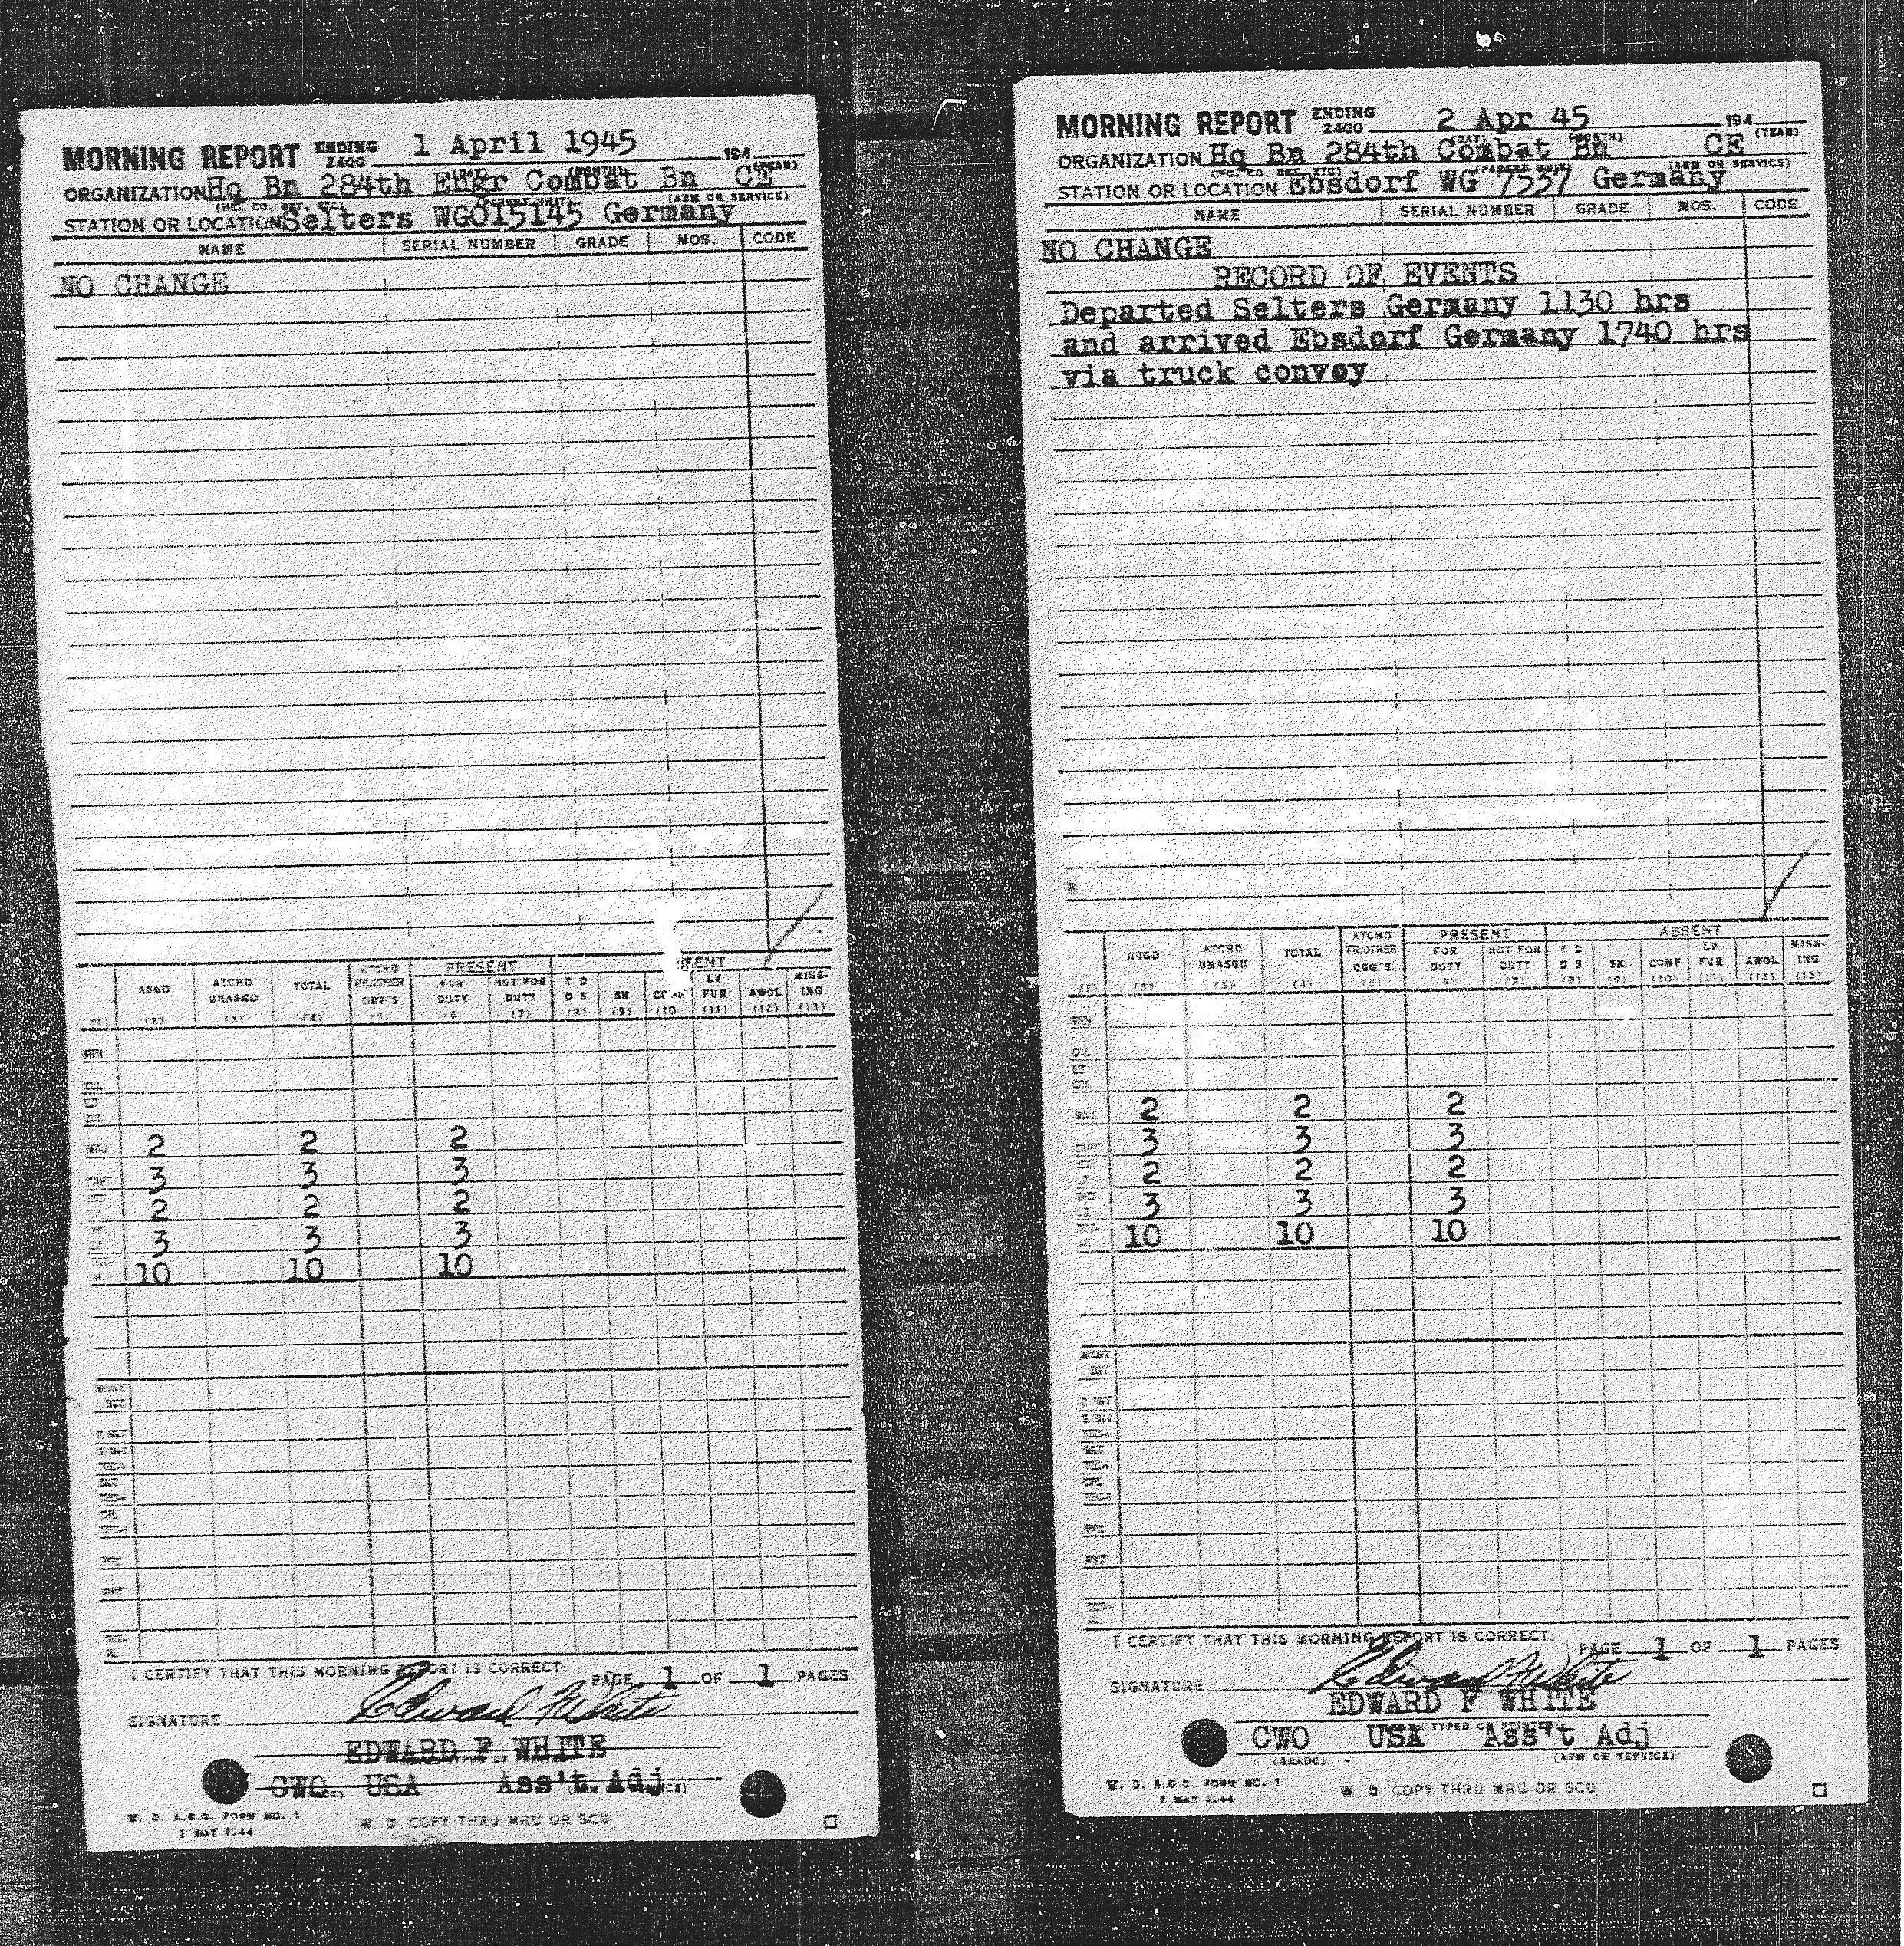 MORNING REPORT ENDING 2400 1 April 1945 194
(DAY) (MONTH) (YEAR)
ORGANIZATION Hq Bn 284th Engr Combat Bn CE
(HQ., CO., DET., ETC) (PARENT UNIT) (ARM OR SERVICE)
STATION OR LOCATION Selters WG015145 Germany
NAME SERIAL NUMBER GRADE MOS. CODE
NO CHANGE
PRESENT
ASGD ATCHD UNASGD TOTAL ATCHD FR.OTHER ORG'S FOR DUTY NOT FOR DUTY T D D S SK CONF LV FUR AWOL MISS- ING
(2) (3) (4) (5) (6) (7) (8) (9) (10) (11) (12) (13)
2 2 2
3 3 3
2 2 2
3 3 3
10 10 10
I CERTIFY THAT THIS MORNING REPORT IS CORRECT: PAGE 1 OF 1 PAGES
SIGNATURE Edward F White
EDWARD F WHITE
CWO USA Ass't Adj
W. D. A.G.O. FORM NO. 1
1 MAY 1944
W D COPY THRU MRU OR SCU
MORNING REPORT ENDING 2400 2 Apr 45 194
(DAY) (MONTH) (YEAR)
ORGANIZATION Hq Bn 284th Combat Bn CE
(HQ., CO., DET., ETC) (PARENT UNIT) (ARM OR SERVICE)
STATION OR LOCATION Ebsdorf WG 7537 Germany
NAME SERIAL NUMBER GRADE MOS. CODE
NO CHANGE
RECORD OF EVENTS
Departed Selters Germany 1130 hrs
and arrived Ebsdorf Germany 1740 hrs
via truck convoy
PRESENT ABSENT
ASGD ATCHD UNASGD TOTAL ATCHD FR.OTHER ORG'S FOR DUTY NOT FOR DUTY T D D S SK CONF LV FUR AWOL MISS- ING
(1) (2) (3) (4) (5) (6) (7) (8) (9) (10) (11) (12) (13)
2 2 2
3 3 3
2 2 2
3 3 3
10 10 10
I CERTIFY THAT THIS MORNING REPORT IS CORRECT: PAGE 1 OF 1 PAGES
SIGNATURE Edward F White
EDWARD F WHITE
CWO USA Ass't Adj
(GRADE) (ARM OR SERVICE)
W. D. A.G.O. FORM NO. 1
1 MAY 1944
W D COPY THRU MRU OR SCU